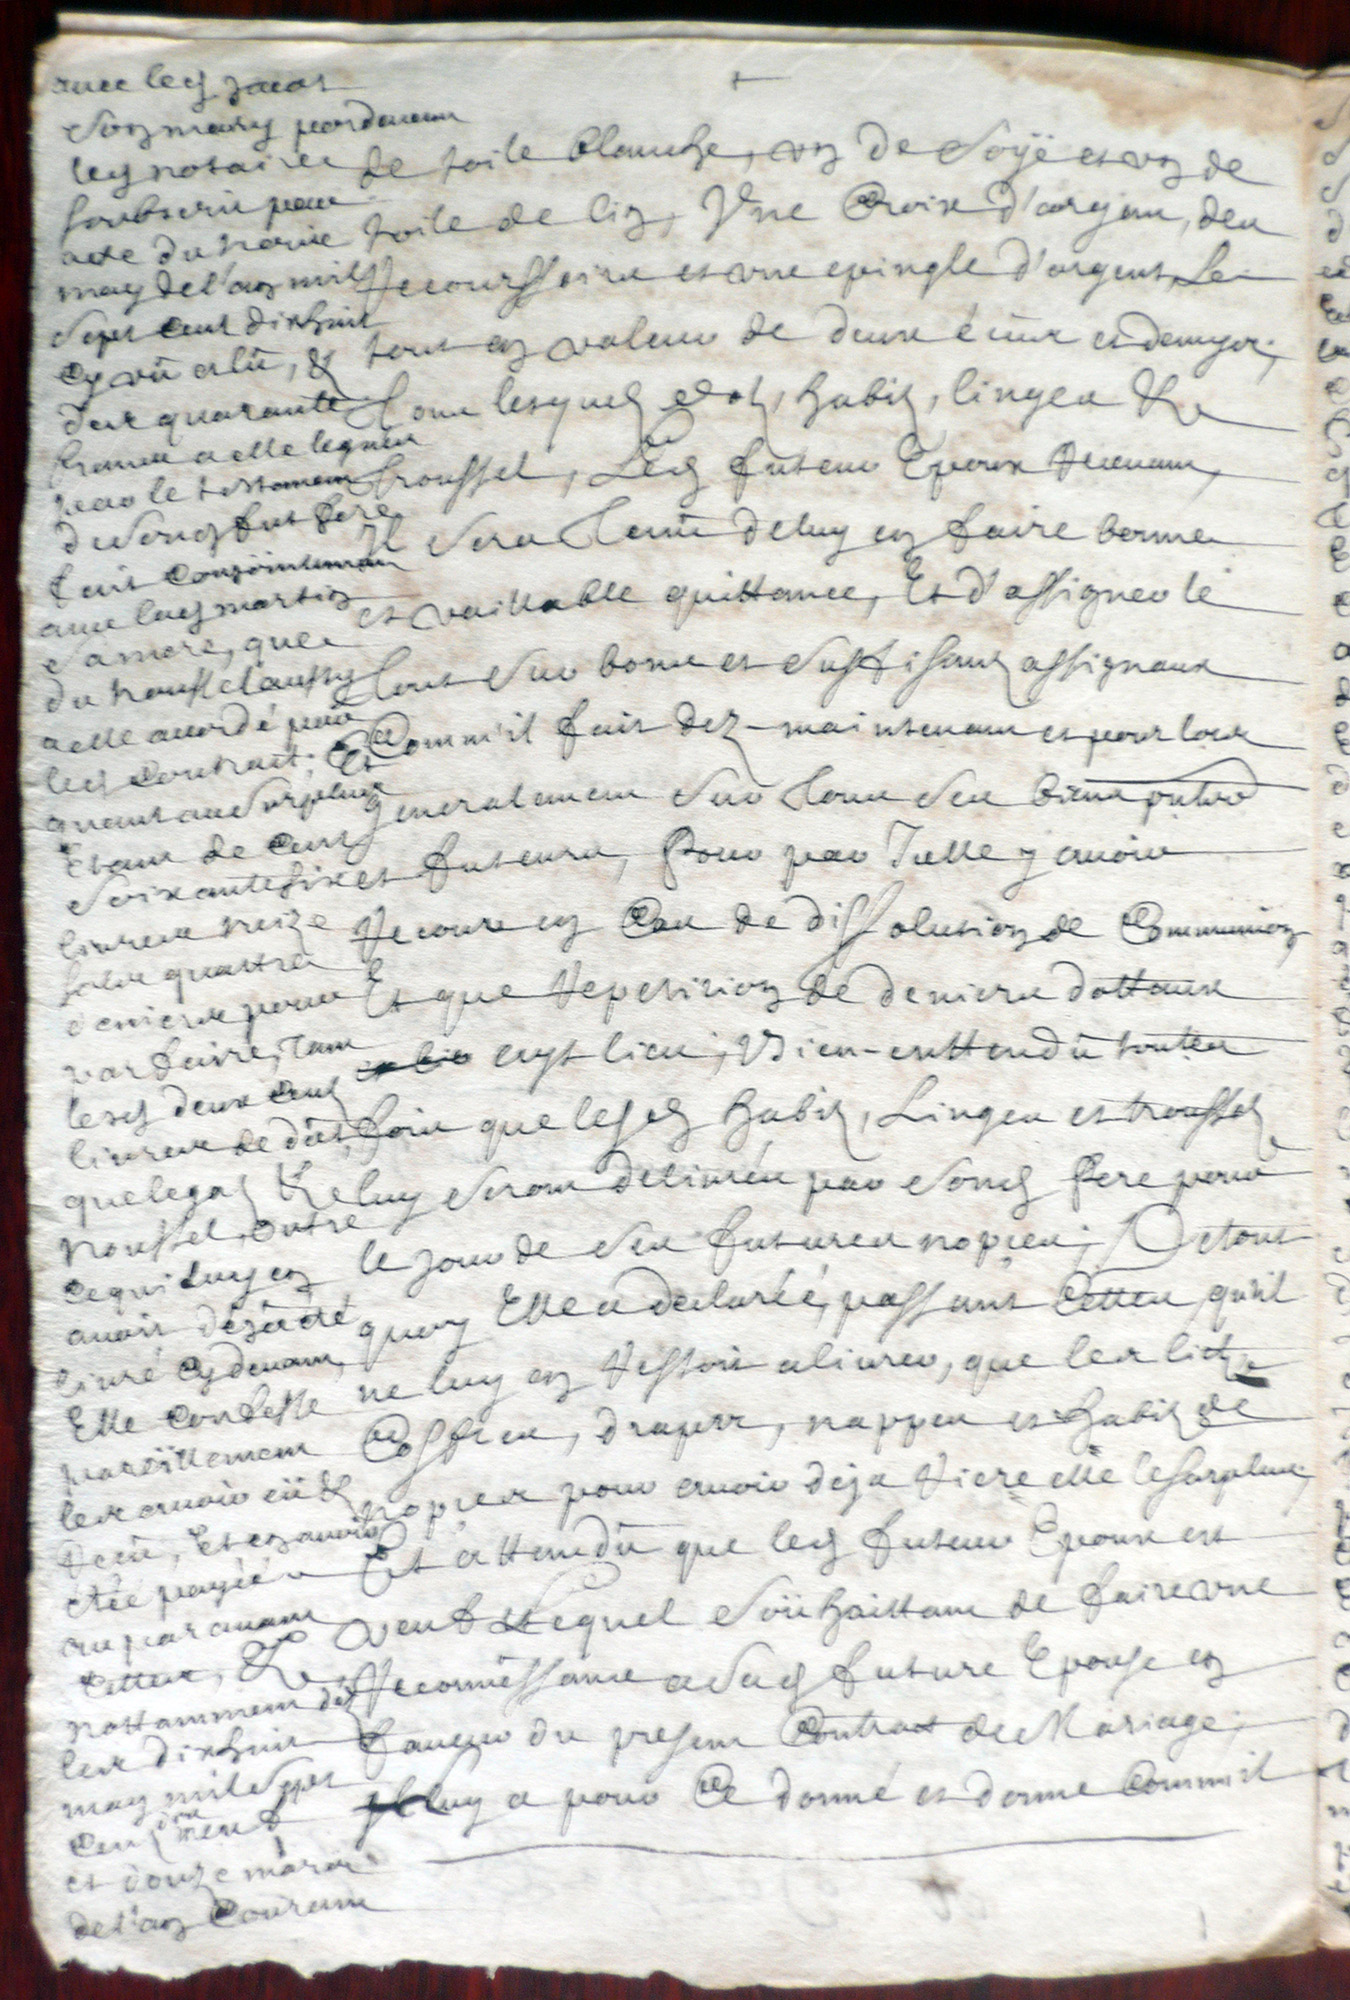 avec led Jacas
son mary pardevant
led notaire
soubsigné par
acte du treize
may de l'an mil
sept cent dixhuit
cy vû et lû, &
des quarante
francs a elle legués
par le testament
de sond fut pere
fait conjointement
avec lad martin
sa mere, que
du troussel aussy
a elle accordé par
led contrait; Et
quant au surplus
Etant de cent
soixante six
livres treize
sols quattre
deniers pour
parfaire, Tant
lesd deux cent
livres de dot,
que legat &
troussel, outre
ce qui luy en
avoit déjà été
livré cy devant,
Elle confesse
pareillement
les avoir eü &
reçu, Et en avoir
été payée
au paravant
cettes, &
nottamment dès
les dixhuit
may mil sept
cent trente
et douze mars
de l'an courant
de toile blanche, un de soÿe et un de
toile de lin, Une Croix d'argent, des
recourssoires et une epingle d'argent, Le
tout en valeur de deux écus et demy;
Tous lesquels dot, habit, linges &
troussel, Led futeur Epoux recevant,
Il sera Tenu de luy en faire bonne
et vaillable quittance, Et d'assigner le
Tout sur bons et suffisant assignaux
Comm'il fait dez-maintenant et pour lors
generalement sur Tous ses biens pnts
et futeurs, Pour par Icelle y avoir
recours en Cas de dissolution de Communion
Et que repetition de deniers dottaux
eust lieu; Bien-entendû toutes
fois que lesd habit, Linges et troussel
luy seront delivrés par sond Pere pour
le jour de ses futures nopces; De tout
quoy Elle a declarée, passant Cettes, qu'il
ne luy en restoit a livrer, que les lict,
Coffres, draps, nappes et habit de
nopces pour avoir déja tiere elle le surplus;
Et attendû que led futeur Epoux est
veuf Lequel soühaittant de faire une
reconnessance a sad future Epouse en
faveur du present Contrat de Mariage;
luy a pour Ce donné et donne Comm'il